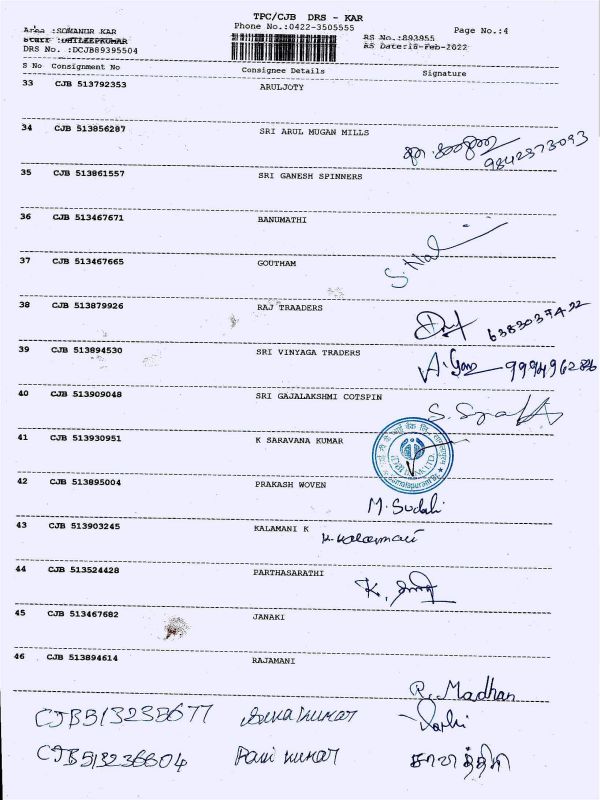 TPC/CJB DRS - KAR
Phone No.:0422-3505555
Page No.:4
Area :SOMANUR KAR
RS No.:893955
DRS No. :DCJB89395504
RS Date:18-Feb-2022
S No Consignment No Consignee Details Signature
33 CJB 513792353 ARULJOTY
34 CJB 513856287 SRI ARUL MUGAN MILLS
9842373093
35 CJB 513861557 SRI GANESH SPINNERS
36 CJB 513467671 BANUMATHI
37 CJB 513467665 GOUTHAM
38 CJB 513879926 RAJ TRAADERS
6383037422
39 CJB 513894530 SRI VINYAGA TRADERS
40 CJB 513909048 SRI GAJALAKSHMI COTSPIN
41 CJB 513930951 K SARAVANA KUMAR
42 CJB 513895004 PRAKASH WOVEN
M. Sudali
43 CJB 513903245 KALAMANI K
K. Kalaimani
44 CJB 513524428 PARTHASARATHI
45 CJB 513467682 JANAKI
46 CJB 513894614 RAJAMANI
R. Madhan
CJB513238677 Sivakumar
CJB513236604 Pavi kumar